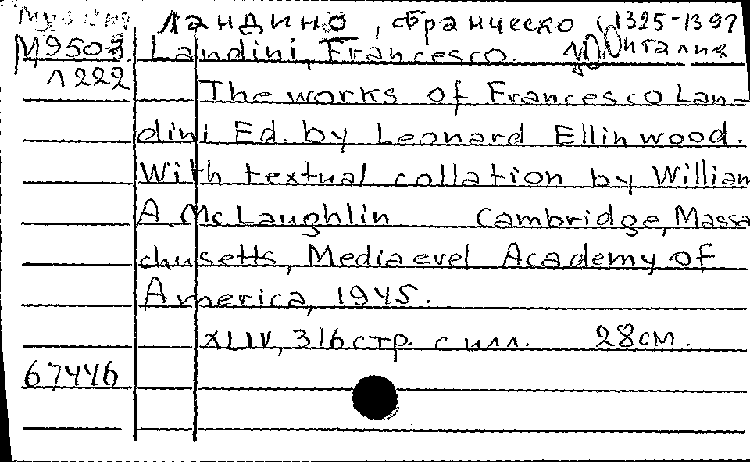 Ландино, Франческо (1325-1397
М9503 Landini, Francesco. Италия
Л222 The works of Francesco Lan-
dini Ed. by Leonard Ellinwood.
With textual collation by William
A. McLaughlin Cambridge, Massa
chusetts, Mediaevel Academy of
America, 1945.
XLIV, 316 стр. с илл. 28см.
67446